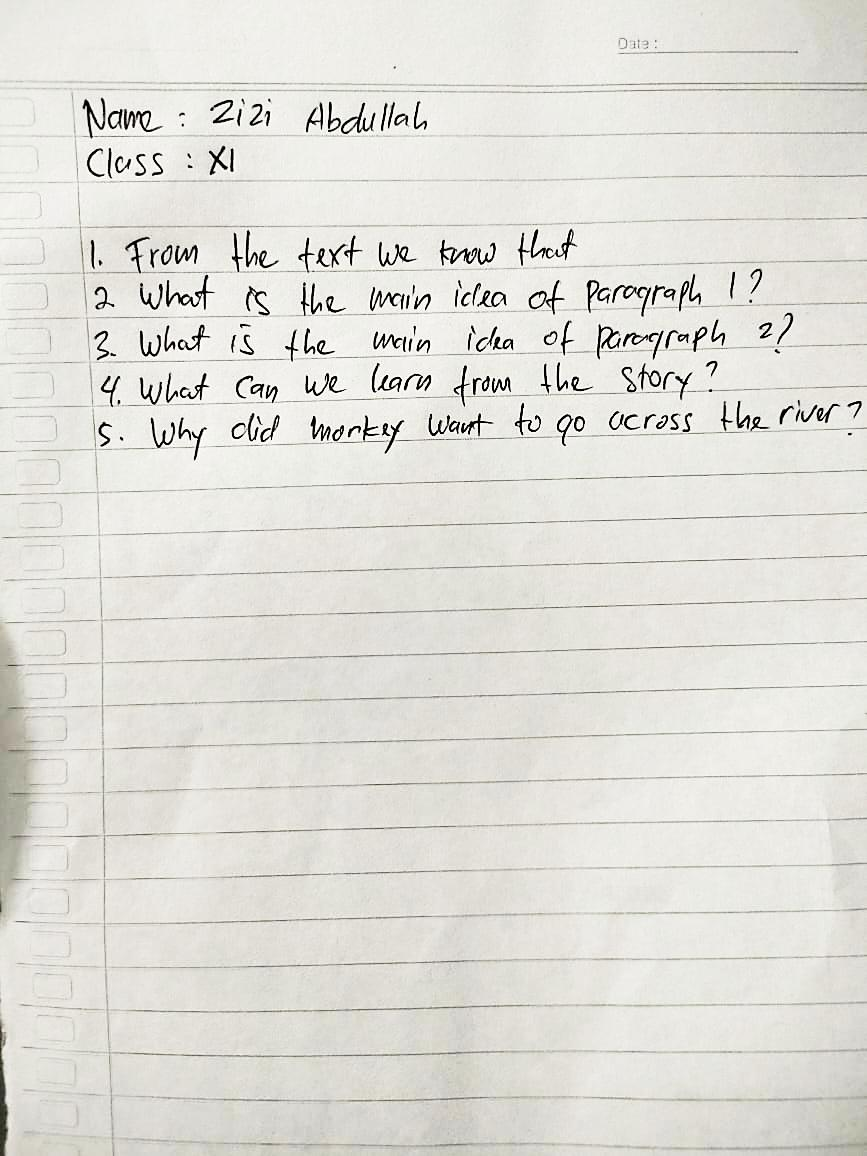 Date :
Name : Zizi Abdullah
Class : XI
1. From the text we know that
2 What is the main idea of paragraph 1?
3. What is the main idea of paragraph 2?
4. What can we learn from the story?
5. Why did monkey want to go across the river?